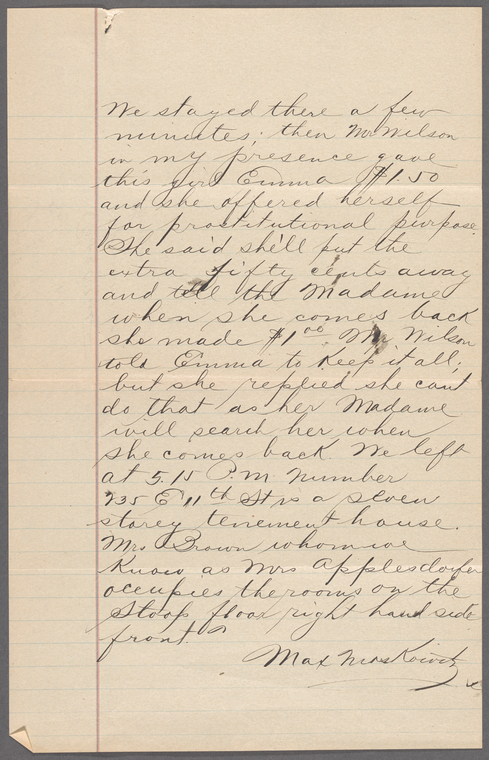 We stayed there a few
minutes; then Mr Wilson
in my presence gave
this girl Emma $1.50
and she offered herself
for prostitutional purpose.
She said she'll put the
extra fifty cents away
and tell the Madame
when she comes back
she made $1 00 Mr. Wilson
told Emma to Keep it all;
but she replied she cant
do that as her Madame
will search her when
she comes back. We left
at 5.15 P.M. Number
735 E 11th St is a seven
storey tenement house.
Mrs Brown whom we
Know as Mrs Applesdorfer
occupies the rooms on the
Stoop floor right hand side
front.
Max Moskowitz